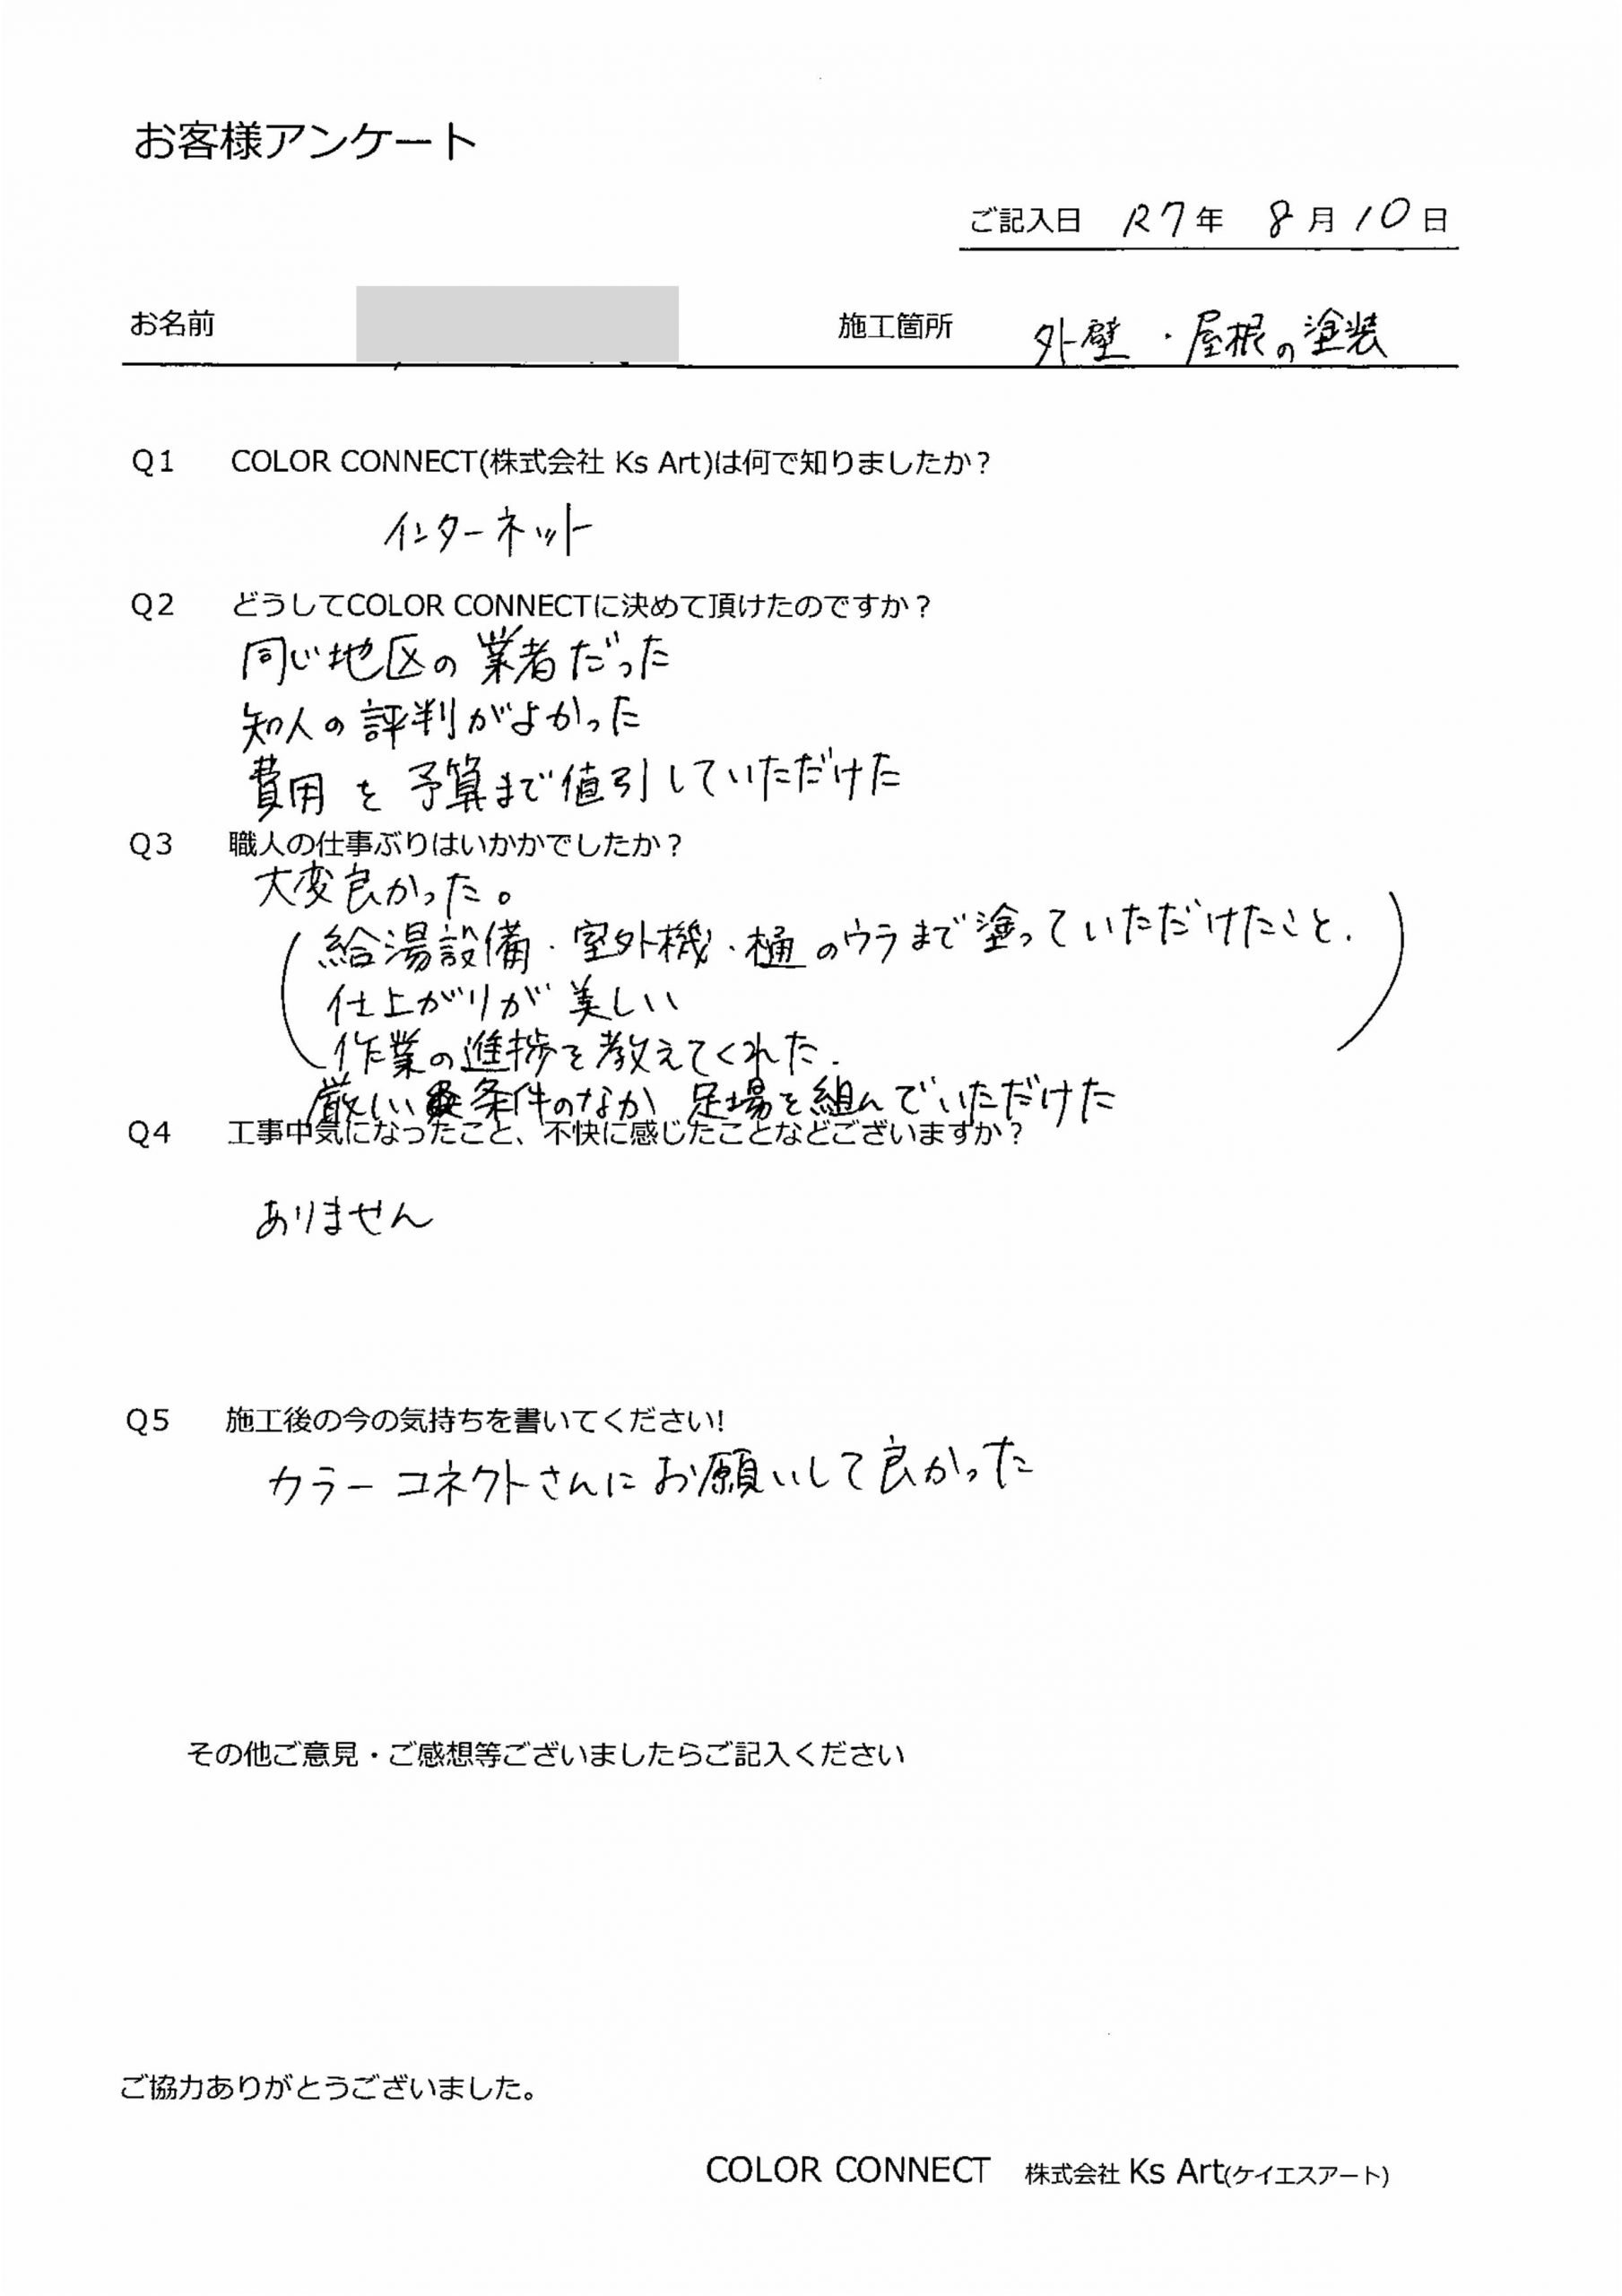 お客様アンケート
ご記入日 R7年 8月10日
お名前 施工箇所 外壁・屋根の塗装
Q1 COLOR CONNECT(株式会社 Ks Art)は何で知りましたか？
インターネット
Q2 どうしてCOLOR CONNECTに決めて頂けたのですか？
同じ地区の業者だった
知人の評判がよかった
費用を予算まで値引していただけた
Q3 職人の仕事ぶりはいかかでしたか？
大変良かった。
(給湯設備・室外機・樋のウラまで塗っていただけたこと.
仕上がりが美しい
作業の進捗を教えてくれた.)
厳しい条件のなか 足場を組んでいただけた
Q4 工事中気になったこと、不快に感じたことなどございますか？
ありません
Q5 施工後の今の気持ちを書いてください!
カラーコネクトさんにお願いして良かった
その他ご意見・ご感想等ございましたらご記入ください
ご協力ありがとうございました。
COLOR CONNECT 株式会社 Ks Art(ケイエスアート)